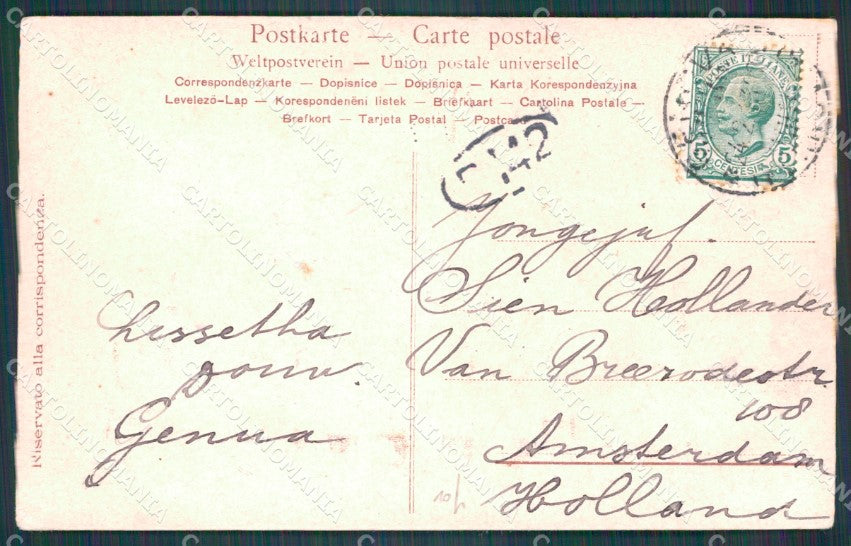 Postkarte — Carte postale
Weltpostverein — Union postale universelle
Correspondenzkarte — Dopisnice — Dopisnica — Karta Korespondenzyjna
Levelező-Lap — Korespondenčni listek — Briefkaart — Cartolina Postale —
Brefkort — Tarjeta Postal — Postcard
Riservato alla corrispondenza.
5 CENTESIMI 5
142
Jongejuf.
Sien Hollander
Van Breerodestr
108
Amsterdam
Holland
Lissetha
Genua
10
CARTOLINOMANIA